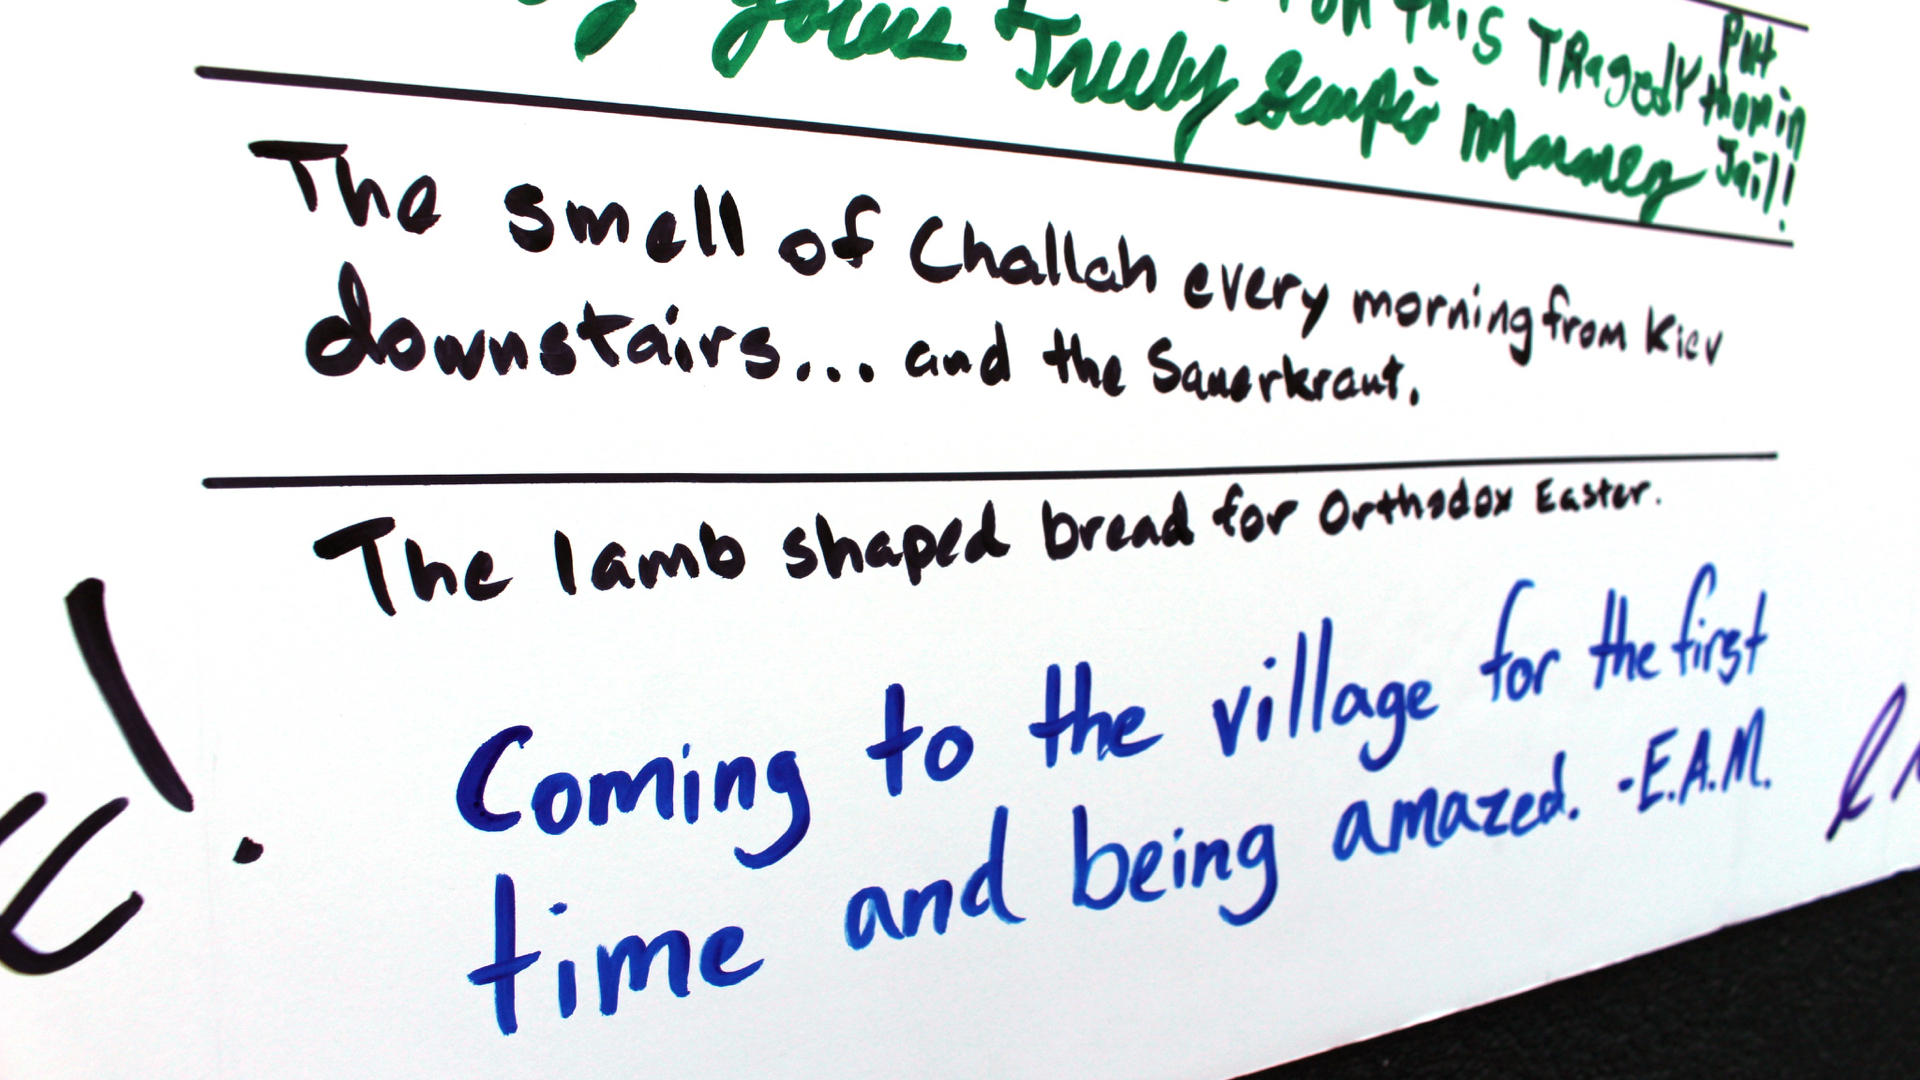 FOR THIS TRAgedy Put
yours Truely them in
Jail!
The smell of Challah every morning from Kiev
downstairs... and the Sauerkraut.
The lamb shaped bread for Orthodox Easter.
Coming to the village for the first
time and being amazed. -E.A.M.